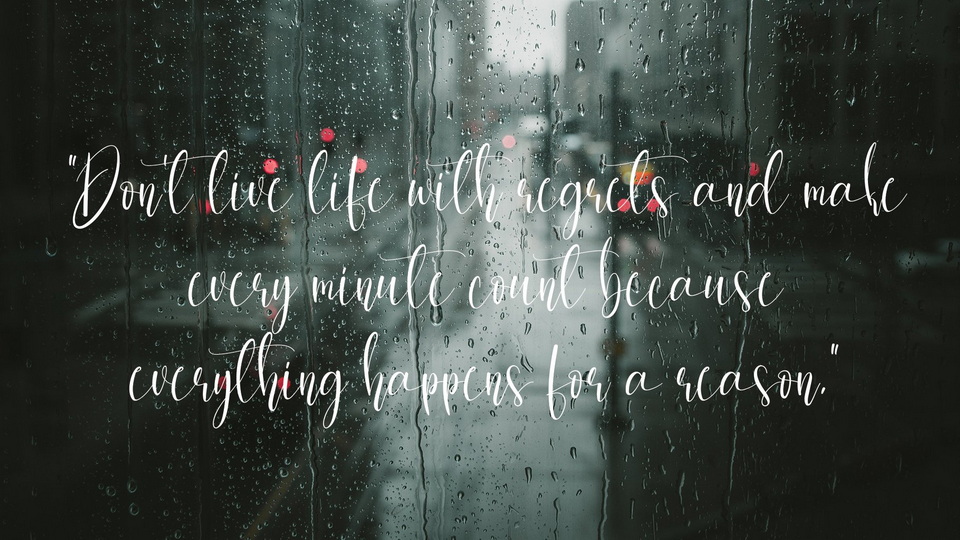 "Don't live life with regrets and make
every minute count because
everything happens for a reason."